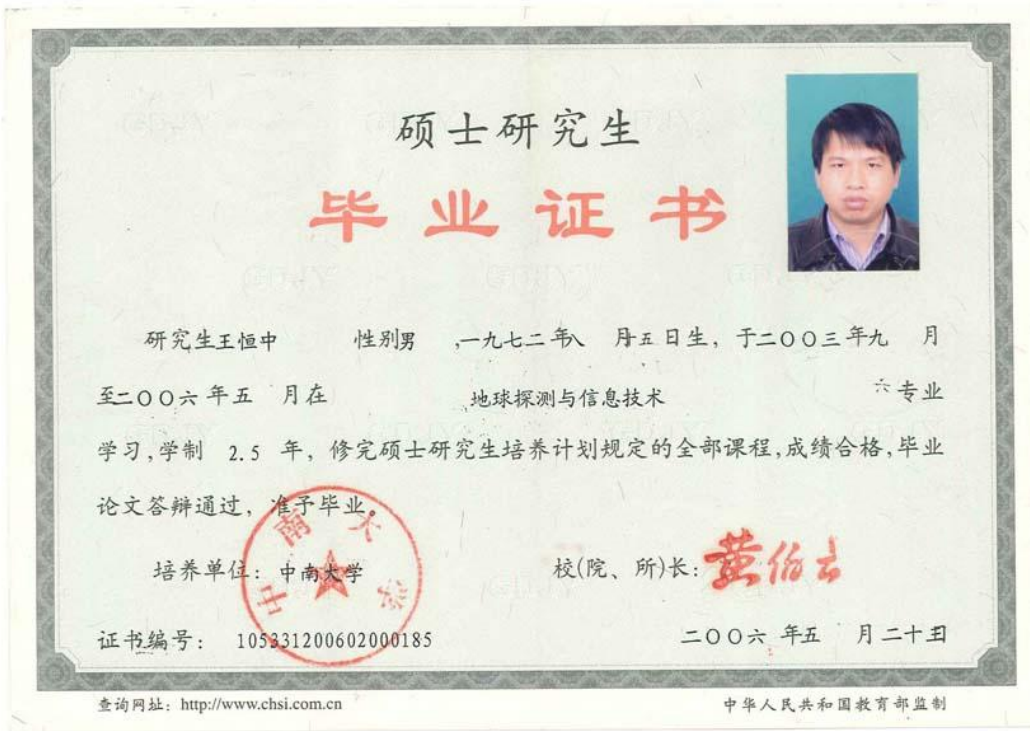 硕士研究生
毕业证书
研究生王恒中 性别男 ,一九七二年八 月五日生，于二〇〇三年九 月
至二〇〇六年五 月在 地球探测与信息技术 专业
学习,学制 2.5 年，修完硕士研究生培养计划规定的全部课程,成绩合格,毕业
论文答辩通过，准予毕业。
中南大学
培养单位：中南大学 校(院、所)长：黄伯云
证书编号： 105331200602000185 二〇〇六 年五 月二十 日
查询网址：http://www.chsi.com.cn 中华人民共和国教育部监制